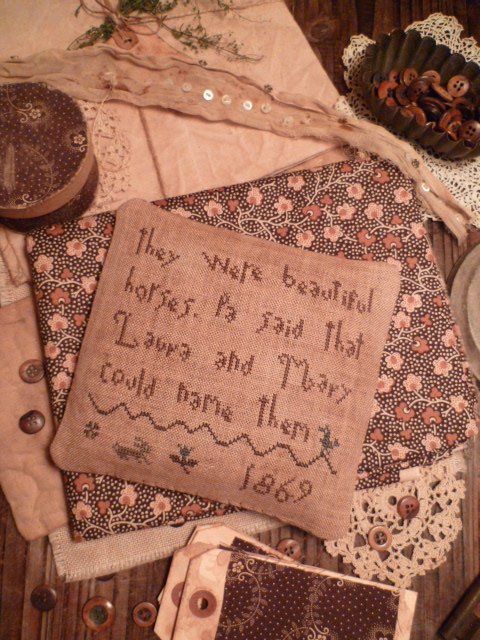 they were beautiful
horses. Pa said that
Laura and Mary
could name them
1869